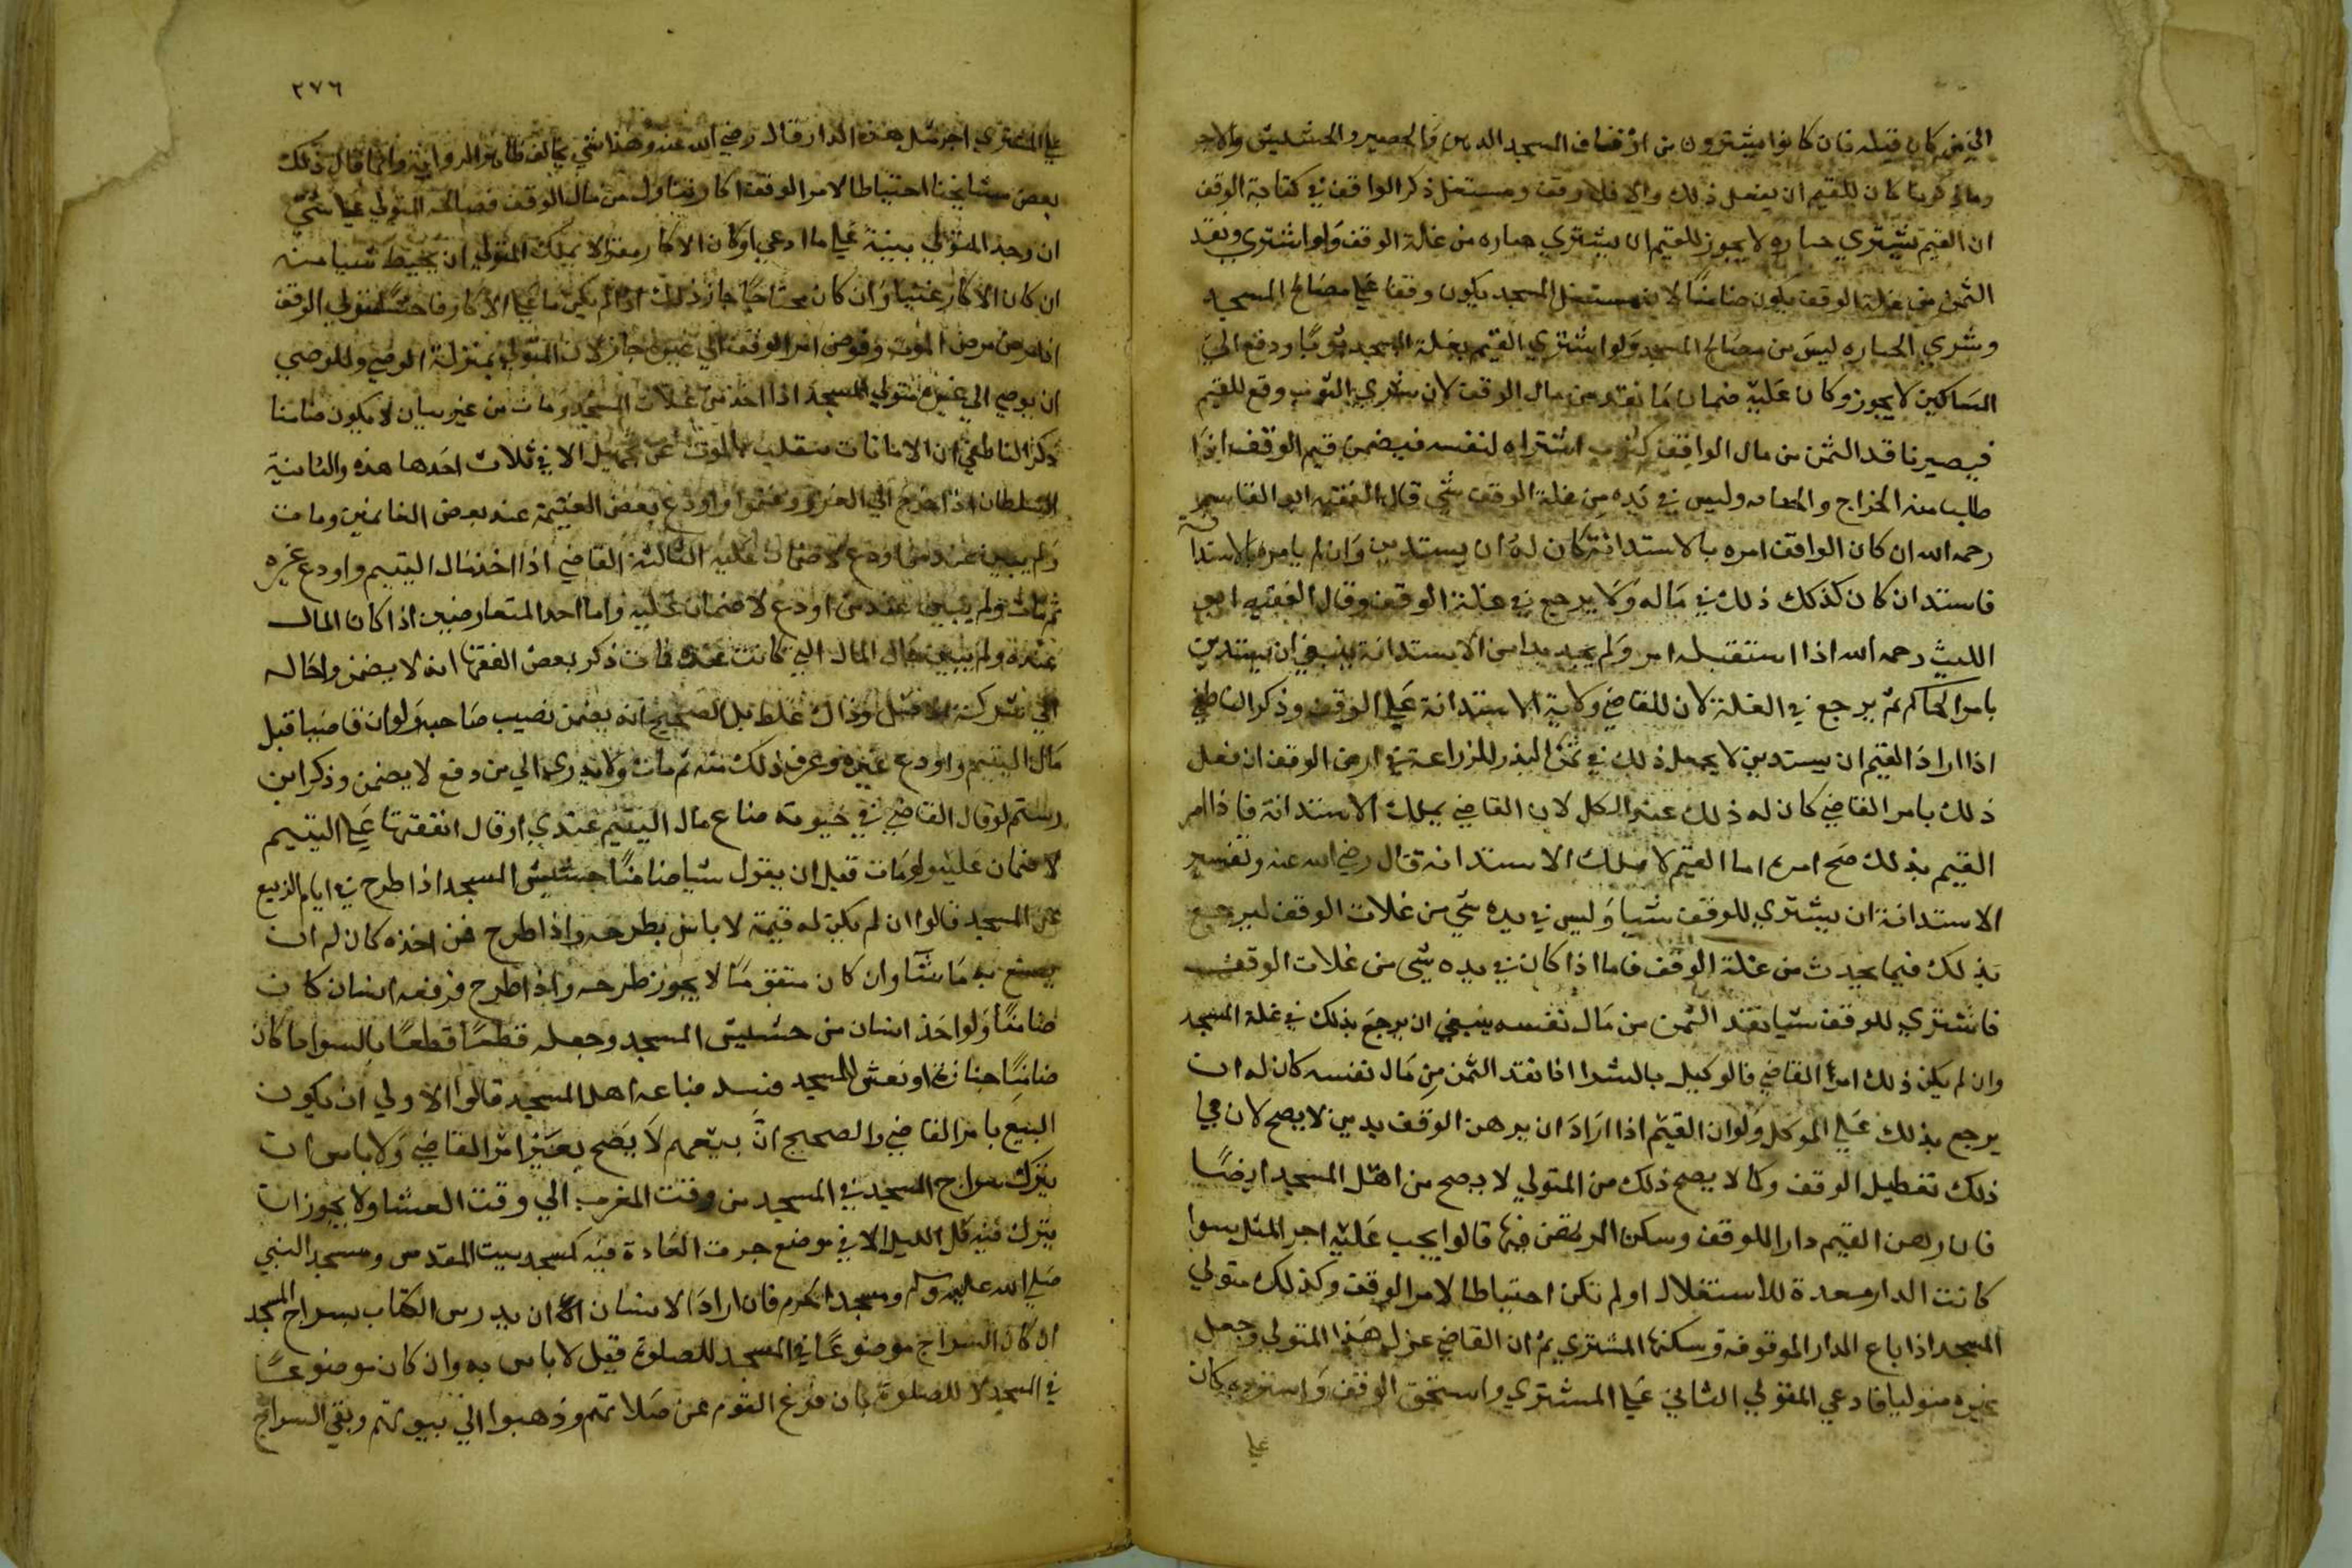 الي من كان قبله فان كانوا يشترون من اوقاف المسجد الدهن والحصير والحشيش والاجر
وما ذكرنا كان للقيم ان يفعل ذلك والا فلا وقف ومستغل ذكر الواقف في كتابة الوقف
ان القيم يشتري جنازه لا يجوز للقيم ان يشتري جنازه من غلة الوقف ولو اشتري ونقد
الثمن من غلة الوقف يكون ضامنا لان مستغل المسجد يكون وقفا علي مصالح المسجد
وشري الجنازه ليس من مصالح المسجد ولو اشتري القيم بغلة المسجد ثوبا ودفع الي
المساكين لا يجوز وكان عليه ضمان ما نقد من مال الوقف لان شري الثوب وقع للقيم
فيصير ناقد الثمن من مال الواقف اشتراه لنفسه فيضمن قيم الوقف اذا
طلب منه الخراج وليس في يده من غلة الوقف شي قال الفقيه ابو القاسم
رحمه الله ان كان الواقف امره بالاستدانة كان له ان يستدين وان لم يامره بالاستدانة
فاستدان كان كذلك ذلك في ماله ولا يرجع في غلة الوقف وقال الفقيه ابي
الليث رحمه الله اذا استقبله امر ولم يجد بدا من الاستدانة ينبغي ان يستدين
بامر الحاكم ثم يرجع في الغلة لان للقاضي ولاية الاستدانة علي الوقف وذكر الناطفي
اذا اراد القيم ان يستدين لا يجعل ذلك في ثمن البذر للزراعة في ارض الوقف ان فعل
ذلك بامر القاضي كان له ذلك عند الكل لان القاضي يملك الاستدانة فاذا امر
القيم بذلك صح امره اما القيم لا يملك الاستدانة قال رضي الله عنه وتفسير
الاستدانة ان يشتري للوقف شيا وليس في يده شي من غلات الوقف ليرجع
بذلك فيما يحدث من غلة الوقف فاما اذا كان في يده شي من غلات الوقف
فاشتري للوقف شيا نقد الثمن من مال نفسه ينبغي ان يرجع بذلك في غلة المسجد
وان لم يكن ذلك امر القاضي فالوكيل بالشرا اذا نقد الثمن من مال نفسه كان له ان
يرجع بذلك علي الموكل ولو ان القيم اذا اراد ان يرهن الوقف بدين لا يصح لان في
ذلك تعطيل الوقف وكما لا يصح ذلك من المتولي لا يصح من اهل المسجد ايضا
فان رهن القيم دارا للوقف وسكن المرتهن فيها قالوا يجب عليه اجر المثل سوا
كانت الدار معدة للاستغلال او لم تكن احتياطا لامر الوقف وكذلك متولي
المسجد اذا باع الدار الموقوفة وسكنها المشتري ثم ان القاضي عزل هذا المتولي وجعل
غيره متوليا فادعي المتولي الثاني علي المشتري واستحق الوقف واسترده كان
علي
٢٧٦
علي المشتري اجر مثل هذه الدار قال رضي الله عنه وهذا شي يخالف ظاهر الروايه وانما قال ذلك
بعض مشايخنا احتياطا لامر الوقف اكار تناول من مال الوقف فصالحه المتولي علي شي
ان وجد المتولي بينة علي ما ادعي او كان الاكار مقرا لا يملك المتولي ان يحيط شيا منه
ان كان الاكار غنيا وان كان محتاجا جاز ذلك اذا لم يكن ما علي الاكار فاحشا متولي الوقف
اذا مرض مرض الموت وفوض امر الوقف الي غيره جاز لان المتولي بمنزلة الوصي وللوصي
ان يوصي الي غيره متولي المسجد اذا اخذ من غلات المسجد ومات من غير بيان لا يكون ضامنا
ذكر الناطفي ان الامانات تنقلب بالموت عن تجهيل الا في ثلاث احدها هذه والثانية
السلطان اذا خرج الي الغزو وغنموا واودع بعض الغنيمة عند بعض الغانمين ومات
ولم يبين عند من اودع لا ضمان عليه الثالثة القاضي اذا اخذ مال اليتيم واودع غيره
ثم مات ولم يبين عند من اودع لا ضمان عليه واما احد المتفاوضين اذا كان المال
عنده ولم يبين حال المال التي كانت عنده فمات ذكر بعض الفقها انه لا يضمن واحاله
الي شركة الاصل وذلك غلط بل الصحيح انه يضمن نصيب صاحبه ولو ان قاضيا قبل
مال اليتيم واودع غيره وعرف ذلك منه ثم مات ولا يدري الي من دفع لا يضمن وذكر ابن
رستم لو قال القاضي في حيوته ضاع مال اليتيم عندي او قال انفقتها علي اليتيم
لا ضمان عليه ولو مات قبل ان يقول شيا ضامنا حشيش المسجد اذا طرح في ايام الربيع
عن المسجد قالوا ان لم يكن له قيمة لا باس بطرحه واذا طرح فمن اخذه كان له ان
يصنع به ما شا وان كان متقوما لا يجوز طرحه واذا طرح فرفعه انسان كان
ضامنا ولو اخذ انسان من حشيش المسجد وجعله قطعا قطعا بالسوا ما كان
ضامنا جنازة او نعش للمسجد فسد فباعه اهل المسجد قالوا الاولي ان يكون
البيع بامر القاضي والصحيح ان بيعهم لا يصح بغير امر القاضي ولا باس ان
يترك سراج المسجد في المسجد من وقت المغرب الي وقت العشا ولا يجوز ان
يترك فيه كل الليل الا في موضع جرت العادة فيه كمسجد بيت المقدس ومسجد النبي
صلي الله عليه وسلم ومسجد الحرم فان اراد الانسان ان يدرس الكتاب بسراج المسجد
ان كان السراج موضوعا في المسجد للصلوة قيل لا باس به وان كان موضوعا
في المسجد لا للصلوة بان فرغ القوم عن صلاتهم وذهبوا الي بيوتهم وبقي السراج